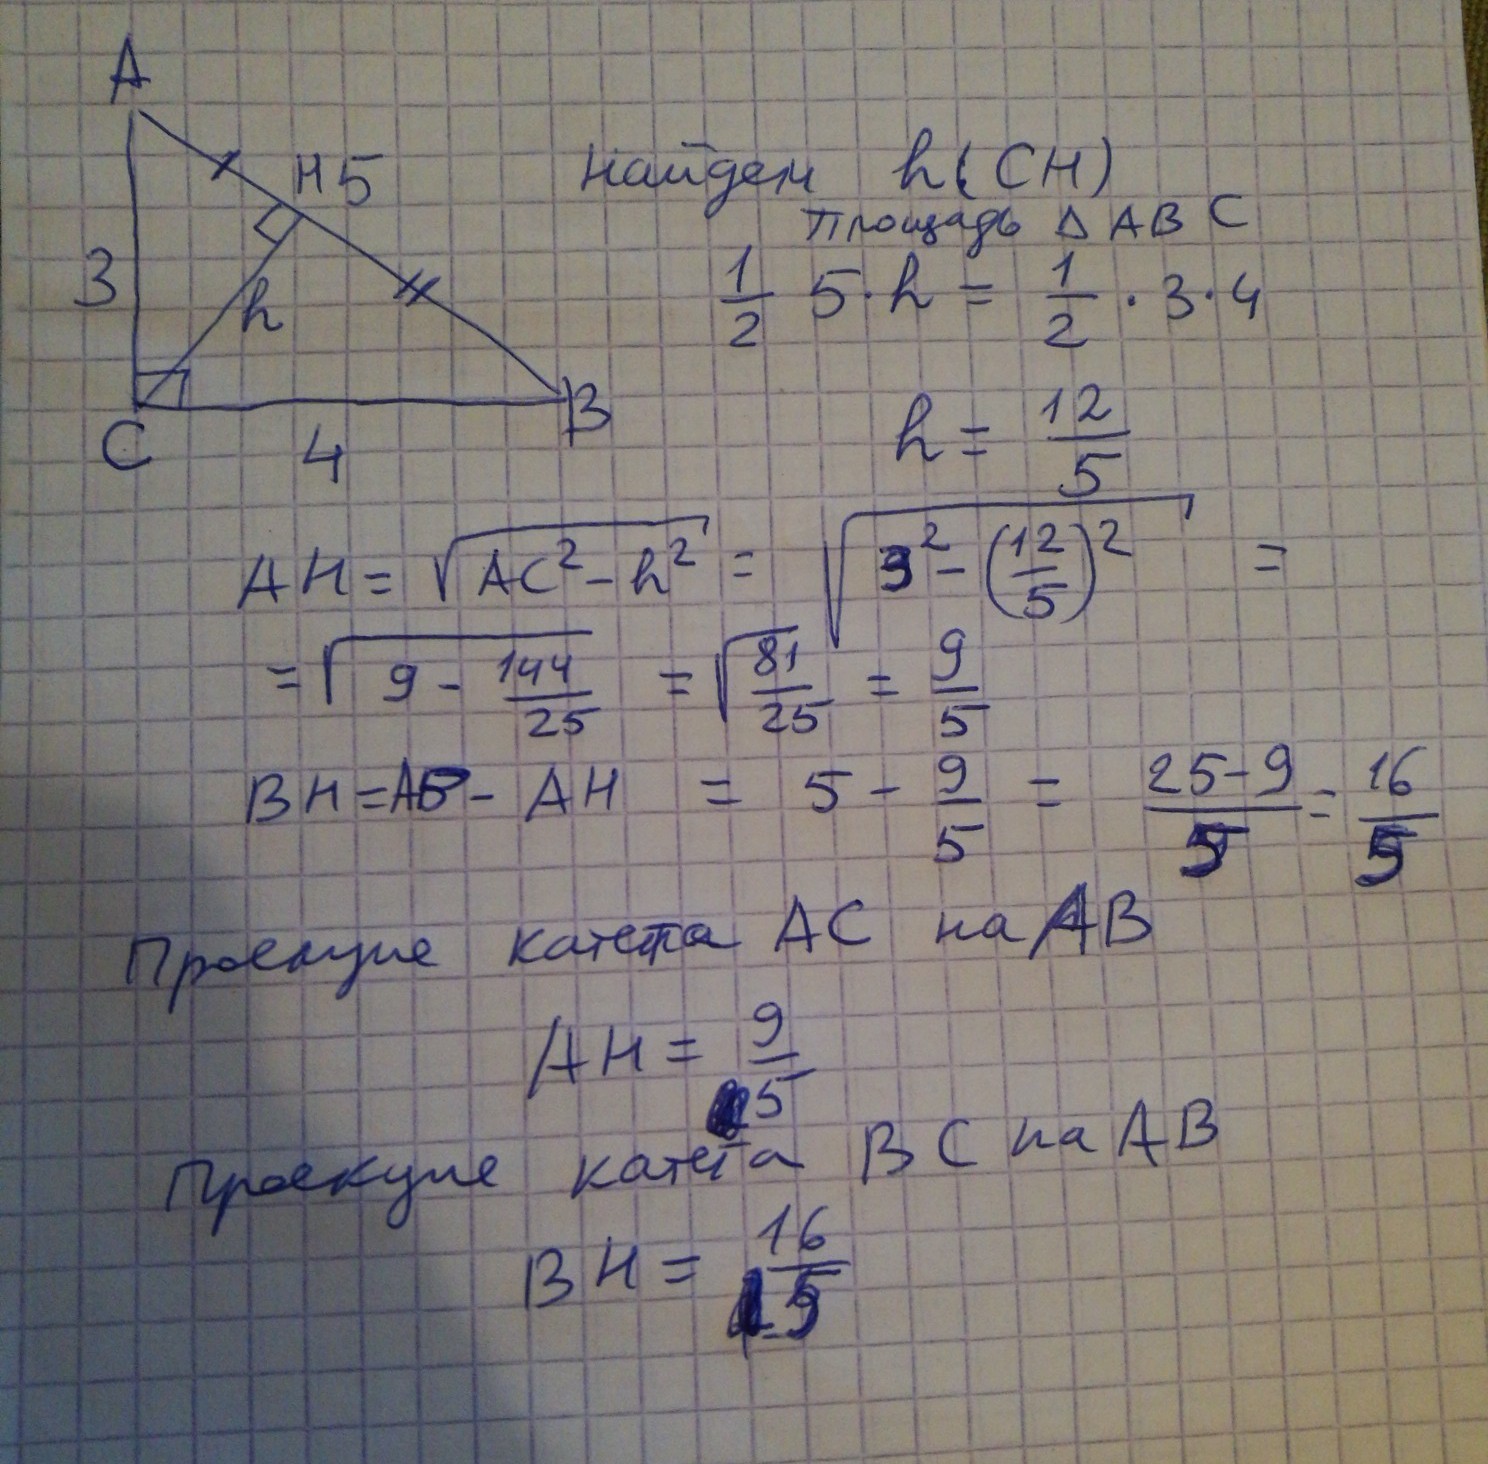 A
H 5
3
h
C
4
B
Найдем h(CH)
Площадь Δ ABC
1/2 5·h = 1/2 · 3·4
h = 12/5
AH = √(AC² - h²) = √(3² - (12/5)²) =
= √(9 - 144/25) = √(81/25) = 9/5
BH = AB - AH = 5 - 9/5 = (25-9)/5 = 16/5
Проекция катета AC на AB
AH = 9/5
Проекция катета BC на AB
BH = 16/5